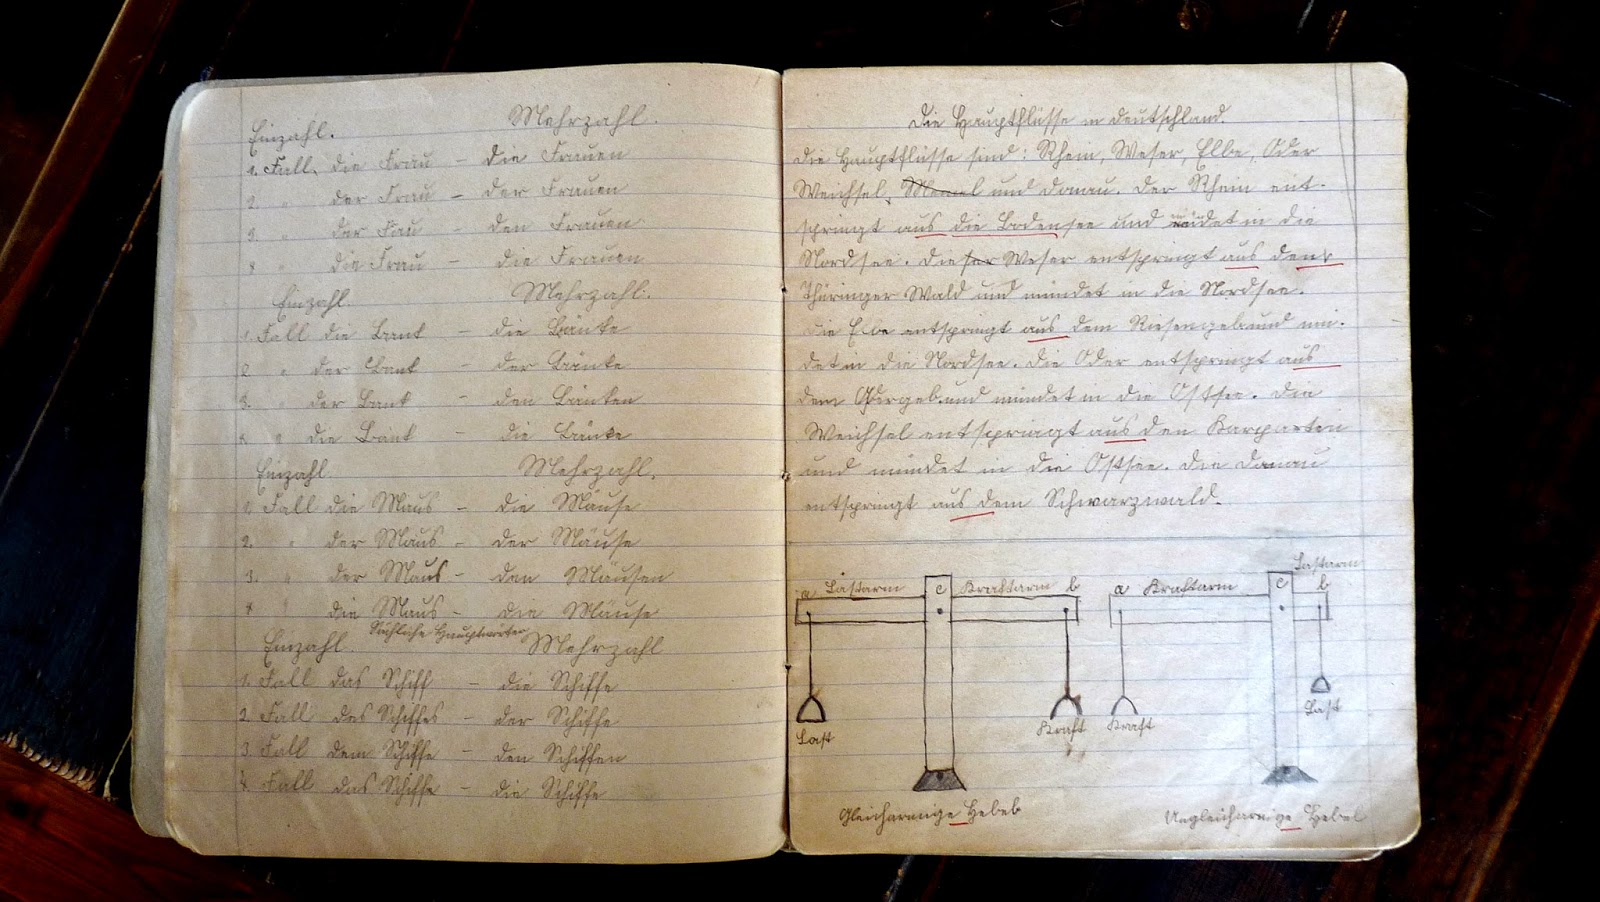 Einzahl. Mehrzahl.
1. Fall die Frau – die Frauen
2. " der Frau – der Frauen
3. " der Fau – den Frauen
4 " die Frau – die Frauen
Einzahl. Mehrzahl.
1. Fall die Bank – die Bänke
2 " der Bank – der Bänke
3. " der Bank – den Bänken
4 " die Bank – die Bänke
Einzahl Mehrzahl.
1. Fall die Maus – die Mäuse
2. " der Maus – der Mäuse
3. " der Maus – den Mäusen
4 " die Maus – die Mäuse
Sächliche Hauptwörter
Einzahl. Mehrzahl
1. Fall das Schiff – die Schiffe
2. Fall des Schiffes – der Schiffe
3 Fall dem Schiffe – den Schiffen
4. Fall das Schiffe – die Schiffe
Die Hauptflüsse in Deutschland.
Die Hauptflüsse sind: Rhein, Weser, Elbe, Oder
Weichsel, Memel und Donau. Der Rhein ent-
springt aus die Bodensee und mündet in die
Nordsee. Die Weser entspringt aus den
Thüringer Wald und mündet in die Nordsee.
Die Elbe entspringt aus dem Riesengeb und mün-
det in die Nordsee. Die Oder entspringt aus
dem und mündet in die Ostsee. Die
Weichsel entspringt aus den Karparten
und mündet in die Ostsee. Die Donau
entspringt aus dem Schwarzwald.
a Lastarm c Kraftarm b
Last Kraft
Gleicharmige Hebeb
a Kraftarm c Lastarm b
Kraft Last
Ungleicharmige Hebel